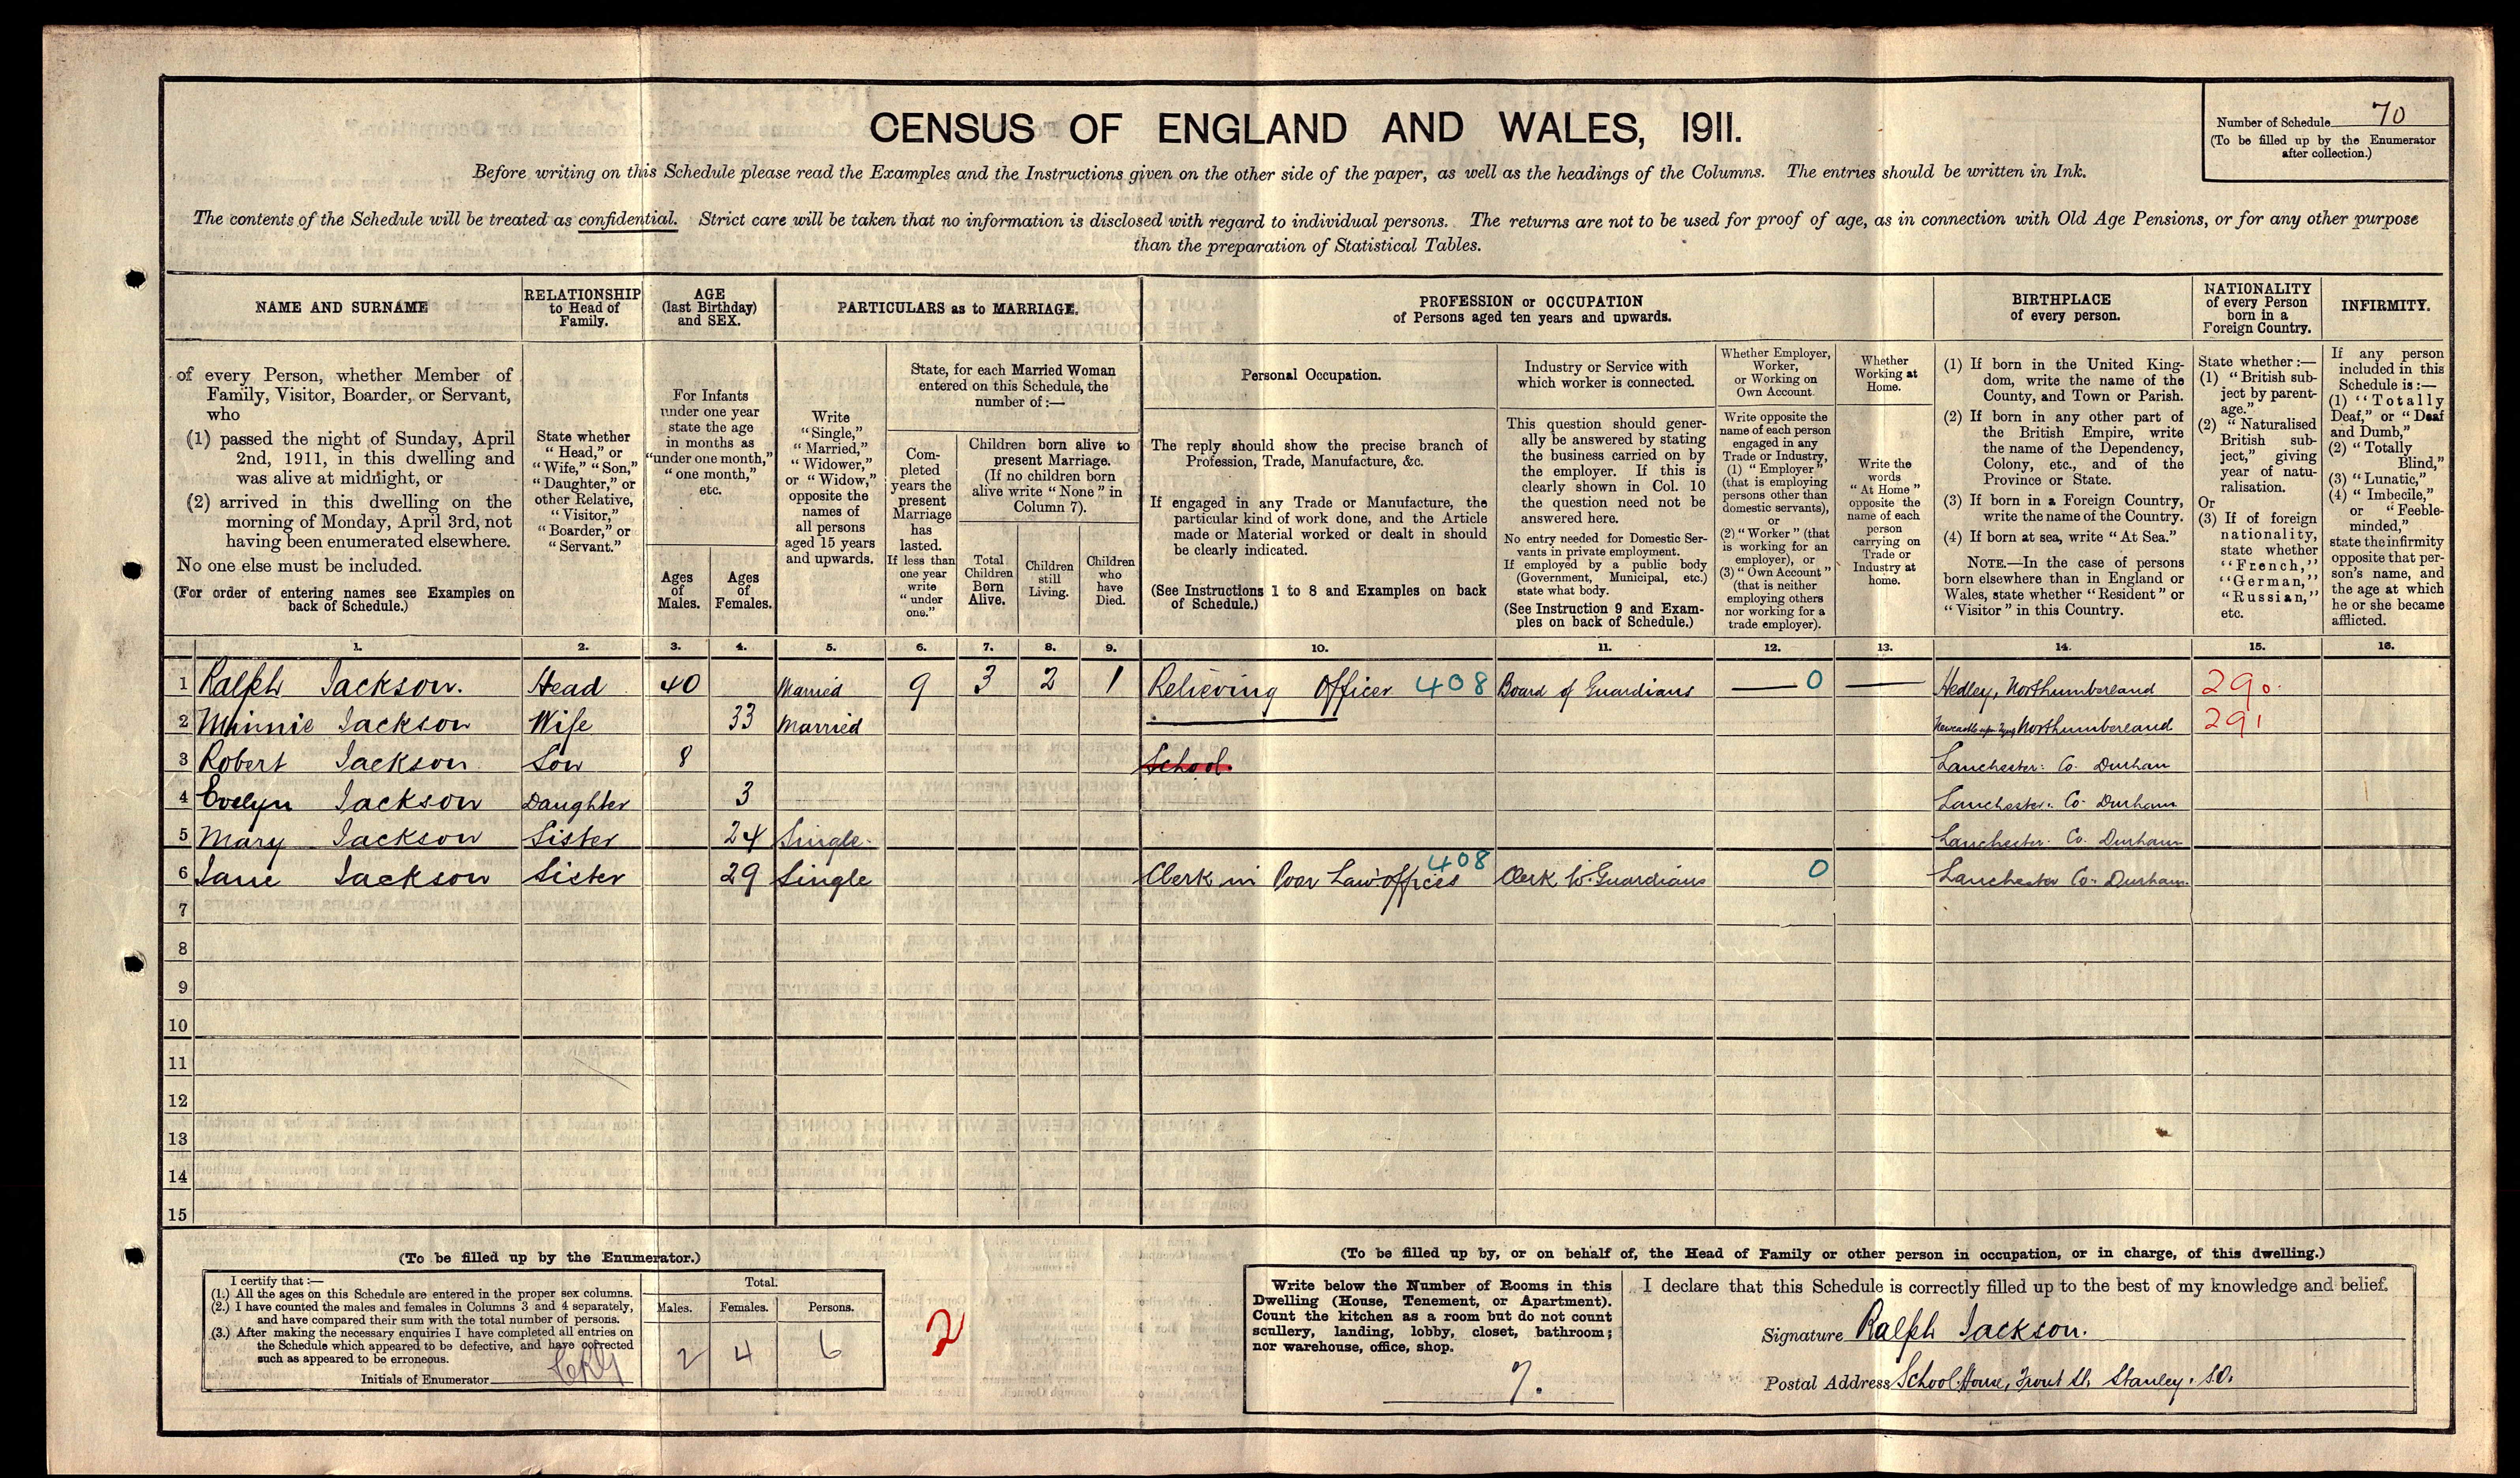 CENSUS OF ENGLAND AND WALES, 1911.
Number of Schedule 70
(To be filled up by the Enumerator
after collection.)
Before writing on this Schedule please read the Examples and the Instructions given on the other side of the paper, as well as the headings of the Columns. The entries should be written in Ink.
The contents of the Schedule will be treated as confidential. Strict care will be taken that no information is disclosed with regard to individual persons. The returns are not to be used for proof of age, as in connection with Old Age Pensions, or for any other purpose
than the preparation of Statistical Tables.
NAME AND SURNAME
of every Person, whether Member of
Family, Visitor, Boarder, or Servant,
who
(1) passed the night of Sunday, April
2nd, 1911, in this dwelling and
was alive at midnight, or
(2) arrived in this dwelling on the
morning of Monday, April 3rd, not
having been enumerated elsewhere.
No one else must be included.
(For order of entering names see Examples on
back of Schedule.)
RELATIONSHIP
to Head of
Family.
State whether
"Head," or
"Wife," "Son,"
"Daughter," or
other Relative,
"Visitor,"
"Boarder," or
"Servant."
AGE
(last Birthday)
and SEX.
For Infants
under one year
state the age
in months as
"under one month,"
"one month,"
etc.
Ages
of
Males.
Ages
of
Females.
PARTICULARS as to MARRIAGE.
Write
"Single,"
"Married,"
"Widower,"
or "Widow,"
opposite the
names of
all persons
aged 15 years
and upwards.
State, for each Married Woman
entered on this Schedule, the
number of:—
Com-
pleted
years the
present
Marriage
has
lasted.
If less than
one year
write
"under
one."
Children born alive to
present Marriage.
(If no children born
alive write "None" in
Column 7).
Total
Children
Born
Alive.
Children
still
Living.
Children
who
have
Died.
PROFESSION or OCCUPATION
of Persons aged ten years and upwards.
Personal Occupation.
The reply should show the precise branch of
Profession, Trade, Manufacture, &c.
If engaged in any Trade or Manufacture, the
particular kind of work done, and the Article
made or Material worked or dealt in should
be clearly indicated.
(See Instructions 1 to 8 and Examples on back
of Schedule.)
Industry or Service with
which worker is connected.
This question should gener-
ally be answered by stating
the business carried on by
the employer. If this is
clearly shown in Col. 10
the question need not be
answered here.
No entry needed for Domestic Ser-
vants in private employment.
If employed by a public body
(Government, Municipal, etc.)
state what body.
(See Instruction 9 and Exam-
ples on back of Schedule.)
Whether Employer,
Worker,
or Working on
Own Account.
Write opposite the
name of each person
engaged in any
Trade or Industry,
(1) "Employer"
(that is employing
persons other than
domestic servants),
or
(2) "Worker" (that
is working for an
employer), or
(3) "Own Account"
(that is neither
employing others
nor working for a
trade employer).
Whether
Working at
Home.
Write the
words
"At Home"
opposite the
name of each
person
carrying on
Trade or
Industry at
home.
BIRTHPLACE
of every person.
(1) If born in the United King-
dom, write the name of the
County, and Town or Parish.
(2) If born in any other part of
the British Empire, write
the name of the Dependency,
Colony, etc., and of the
Province or State.
(3) If born in a Foreign Country,
write the name of the Country.
(4) If born at sea, write "At Sea."
NOTE.—In the case of persons
born elsewhere than in England or
Wales, state whether "Resident" or
"Visitor" in this Country.
NATIONALITY
of every Person
born in a
Foreign Country.
State whether:—
(1) "British sub-
ject by parent-
age."
(2) "Naturalised
British sub-
ject," giving
year of natu-
ralisation.
Or
(3) If of foreign
nationality,
state whether
"French,"
"German,"
"Russian,"
etc.
INFIRMITY.
If any person
included in this
Schedule is:—
(1) "Totally
Deaf," or "Deaf
and Dumb,"
(2) "Totally
Blind,"
(3) "Lunatic,"
(4) "Imbecile,"
or "Feeble-
minded,"
state the infirmity
opposite that per-
son's name, and
the age at which
he or she became
afflicted.
1. 2. 3. 4. 5. 6. 7. 8. 9. 10. 11. 12. 13. 14. 15. 16.
1 Ralph Jackson. Head 40 Married 9 3 2 1 Relieving Officer 408 Board of Guardians — 0 — Hedley, Northumberland 290.
2 Minnie Jackson Wife 33 Married Newcastle upon Tyne Northumberland 291
3 Robert Jackson Son 8 School. Lanchester: Co. Durham
4 Evelyn Jackson Daughter 3 Lanchester: Co. Durham
5 Mary Jackson Sister 24 Single. Lanchester. Co. Durham
6 Jane Jackson Sister 29 Single Clerk in Poor Law offices 408 Clerk to Guardians 0 Lanchester Co. Durham.
7
8
9
10
11
12
13
14
15
(To be filled up by the Enumerator.)
I certify that:—
(1.) All the ages on this Schedule are entered in the proper sex columns.
(2.) I have counted the males and females in Columns 3 and 4 separately,
and have compared their sum with the total number of persons.
(3.) After making the necessary enquiries I have completed all entries on
the Schedule which appeared to be defective, and have corrected
such as appeared to be erroneous.
Initials of Enumerator
Total.
Males. Females. Persons.
2 4 6
2
(To be filled up by, or on behalf of, the Head of Family or other person in occupation, or in charge, of this dwelling.)
Write below the Number of Rooms in this
Dwelling (House, Tenement, or Apartment).
Count the kitchen as a room but do not count
scullery, landing, lobby, closet, bathroom;
nor warehouse, office, shop.
7.
I declare that this Schedule is correctly filled up to the best of my knowledge and belief.
Signature Ralph Jackson.
Postal Address School House, Front St, Stanley. S.O.